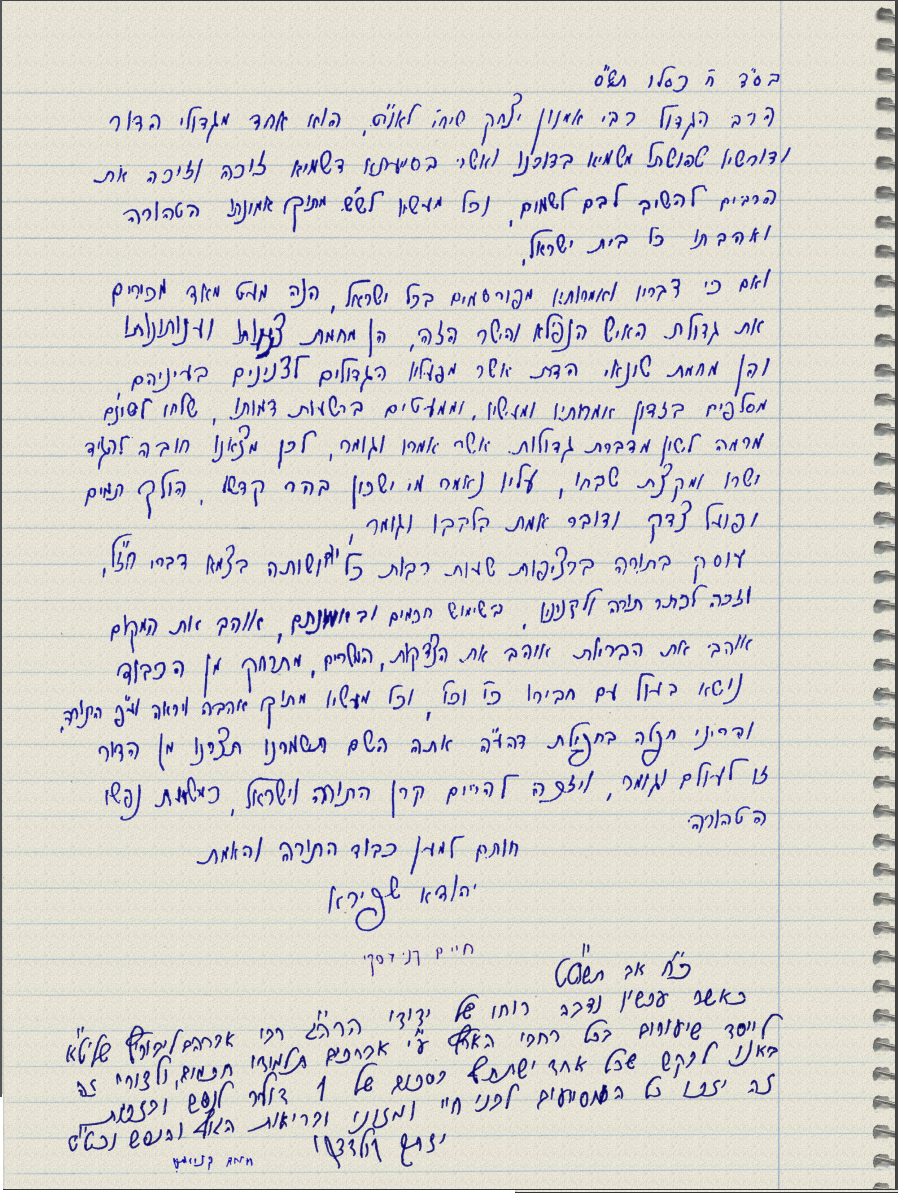 בס"ד ח' כסלו תש"ס
הרב הגדול רבי אמנון יצחק שיחי' לאוי"ט, הוא אחד מגדולי הדור
ודורשיו שהושתל משמיא בדורנו ואשר בסייעתא דשמיא זוכה ומזכה את
הרבים להשיב לבם לשמים, וכל מעשיו לש"ש מתוך אמונתו הטהורה
ואהבתו כל בית ישראל,
ואם כי דבריו ואמרותיו מפורסמים בכל ישראל, הנה מעט מאד מכירים
את גדולת האיש הנפלא והישר הזה, הן מחמת צניעותו וענותנותו
והן מחמת שונאי הדת אשר מפעליו הגדולים לצנינים בעיניהם,
מסלפים בזדון אמרותיו ומעשיו, וממעטים ברשעות דמותו, שלחו לשונם
מרמה לשון מדברת גדולות אשר אמרו וגומר, לכן מצאנו חובה להגיד
ישרו ומקצת שבחו, עליו נאמר מי ישכון בהר קדשו, הולך תמים
ופועל צדק ודובר אמת בלבבו וגומר,
עוסק בתורה ברציפות שעות רבות כל יום ושותה בצמא דברי חז"ל,
וזכה לכתר תורה ולקניניו, בשימוש חכמים ובאמונתם, אוהב את המקום
אוהב את הבריות אוהב את הצדקות, המשרים, מתרחק מן הכבוד
נושא בעול עם חבירו כו' וכו', וכל מעשיו מתוך אהבה ויראה ועפ"י התורה,
והריני תפלה בתפילת דהע"ה אתה השם תשמרנו תצרנו מן הדור
זו לעולם וגומר, ויזכה להרים קרן התורה וישראל, כמשאת נפשו
הטהורה.
חותם למען כבוד התורה והאמת
יהודא שפירא
חיים קניבסקי
כ"ח אב תשס"ט
כאשר עכשיו נדבה רוחו של ידידי הרה"ג רבי אברהם ליבוריץ שליט"א
לייסד שיעורים בכל רחבי הארץ ע"י אברכים תלמידי חכמים, ולצורך זה
באנו לבקש שכל אחד ישתתף בסכום של 1 דולר לנפש ובזכות
זה יזכו כל המסייעים לבני חיי ומזוני ובריאות הגוף והנפש וכט"ס
חיים קניבסקי